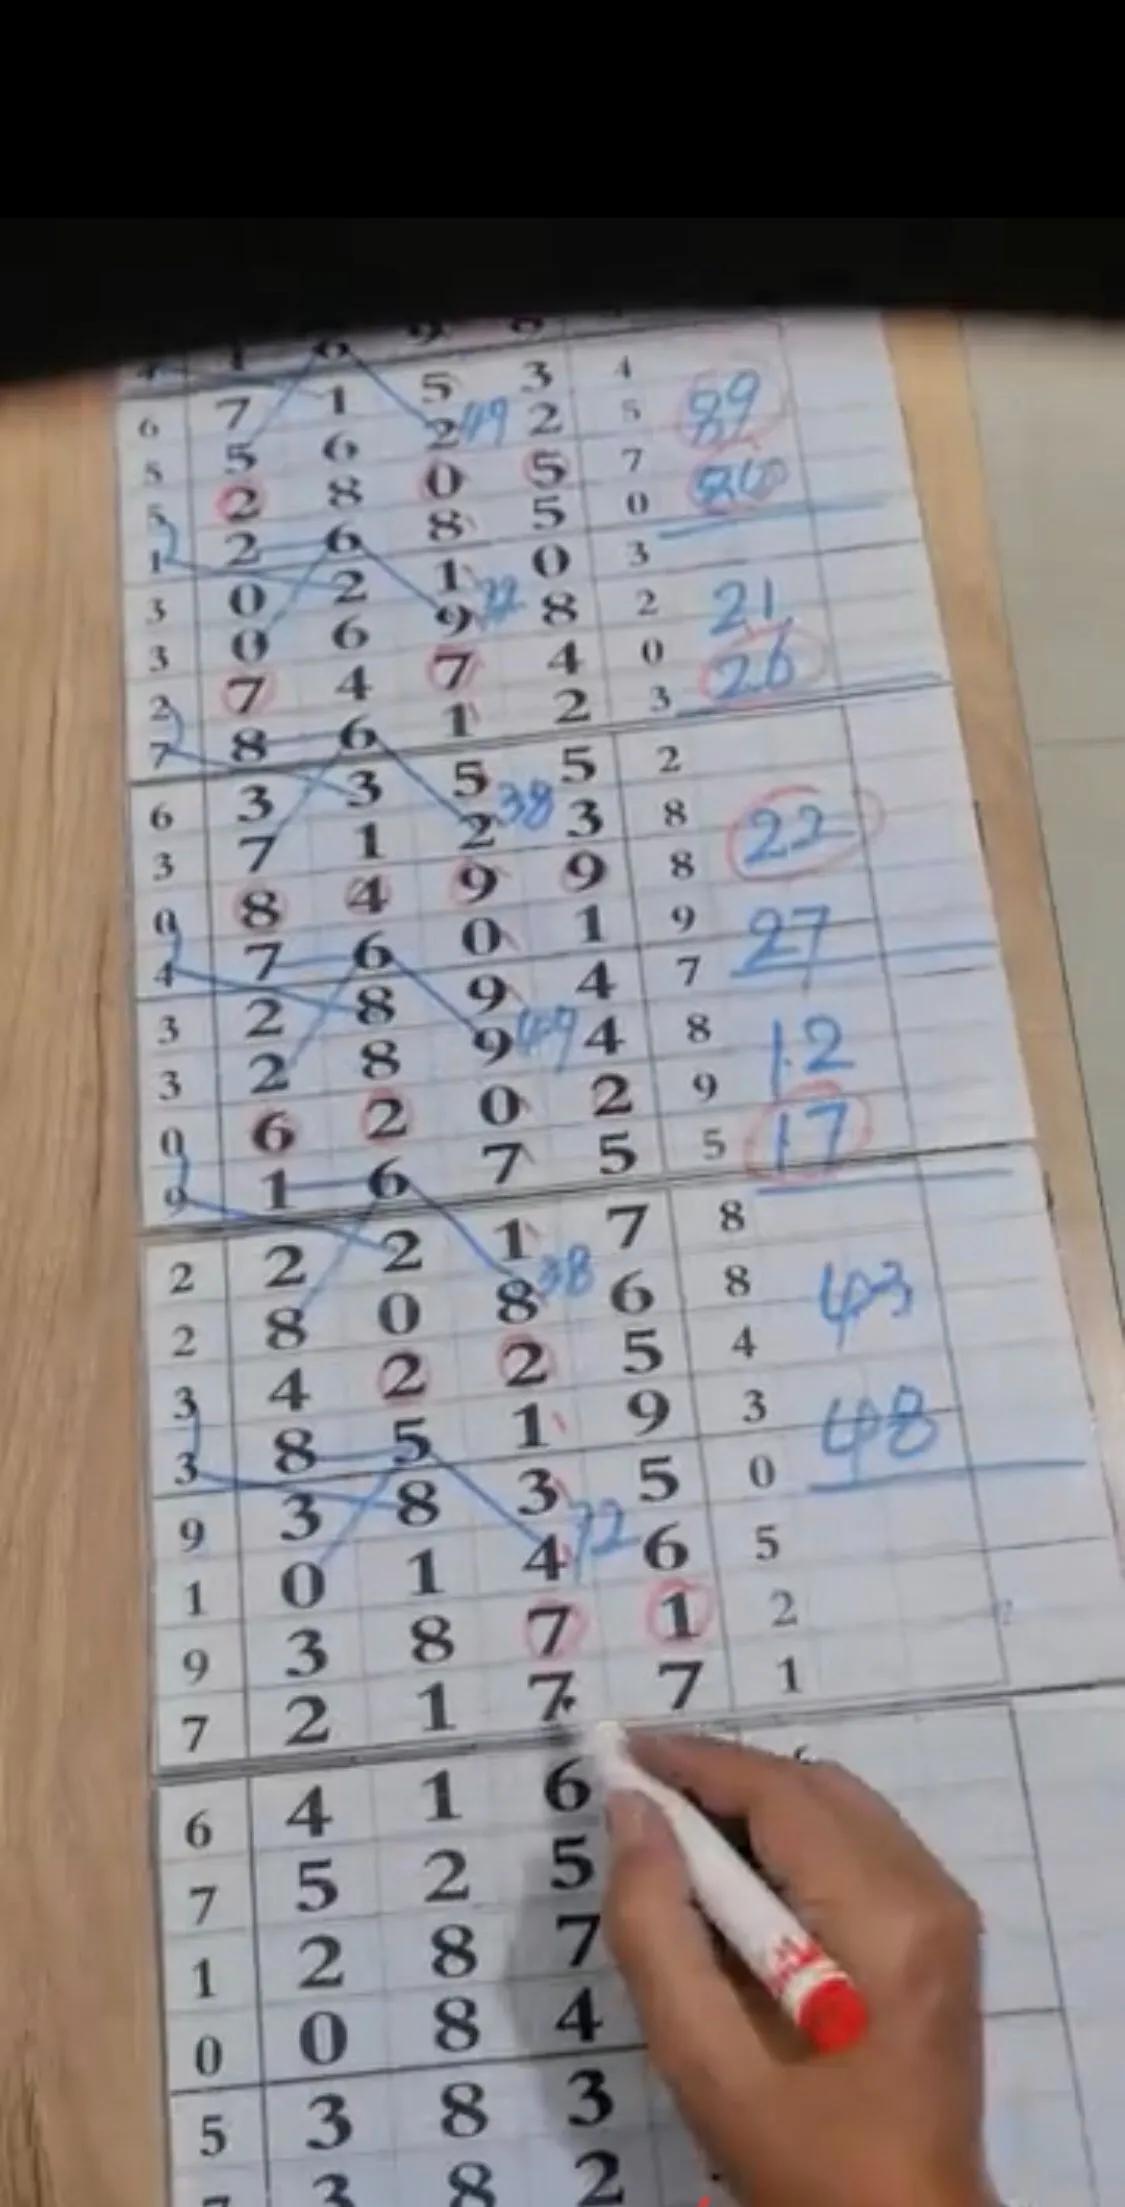 6 7 1 5 3 4
5 5 6 2 49 2 5 89
5 2 8 0 5 7
1 2 6 8 5 0
3 0 2 1 0 3
3 0 6 9 72 8 2 21
2 7 4 7 4 0 26
7 8 6 1 2 3
6 3 3 5 5 2
3 7 1 2 38 3 8 22
0 8 4 9 9 8
4 7 6 0 1 9 27
3 2 8 9 4 7
3 2 8 9 49 4 8 12
0 6 2 0 2 9 17
9 1 6 7 5 5
2 2 2 1 7 8
2 8 0 8 38 6 8 43
3 4 2 2 5 4
3 8 5 1 9 3 48
9 3 8 3 5 0
1 0 1 4 72 6 5
9 3 8 7 1 2
7 2 1 7 7 1
6 4 1 6
7 5 2 5
1 2 8 7
0 0 8 4
5 3 8 3
3 8 2